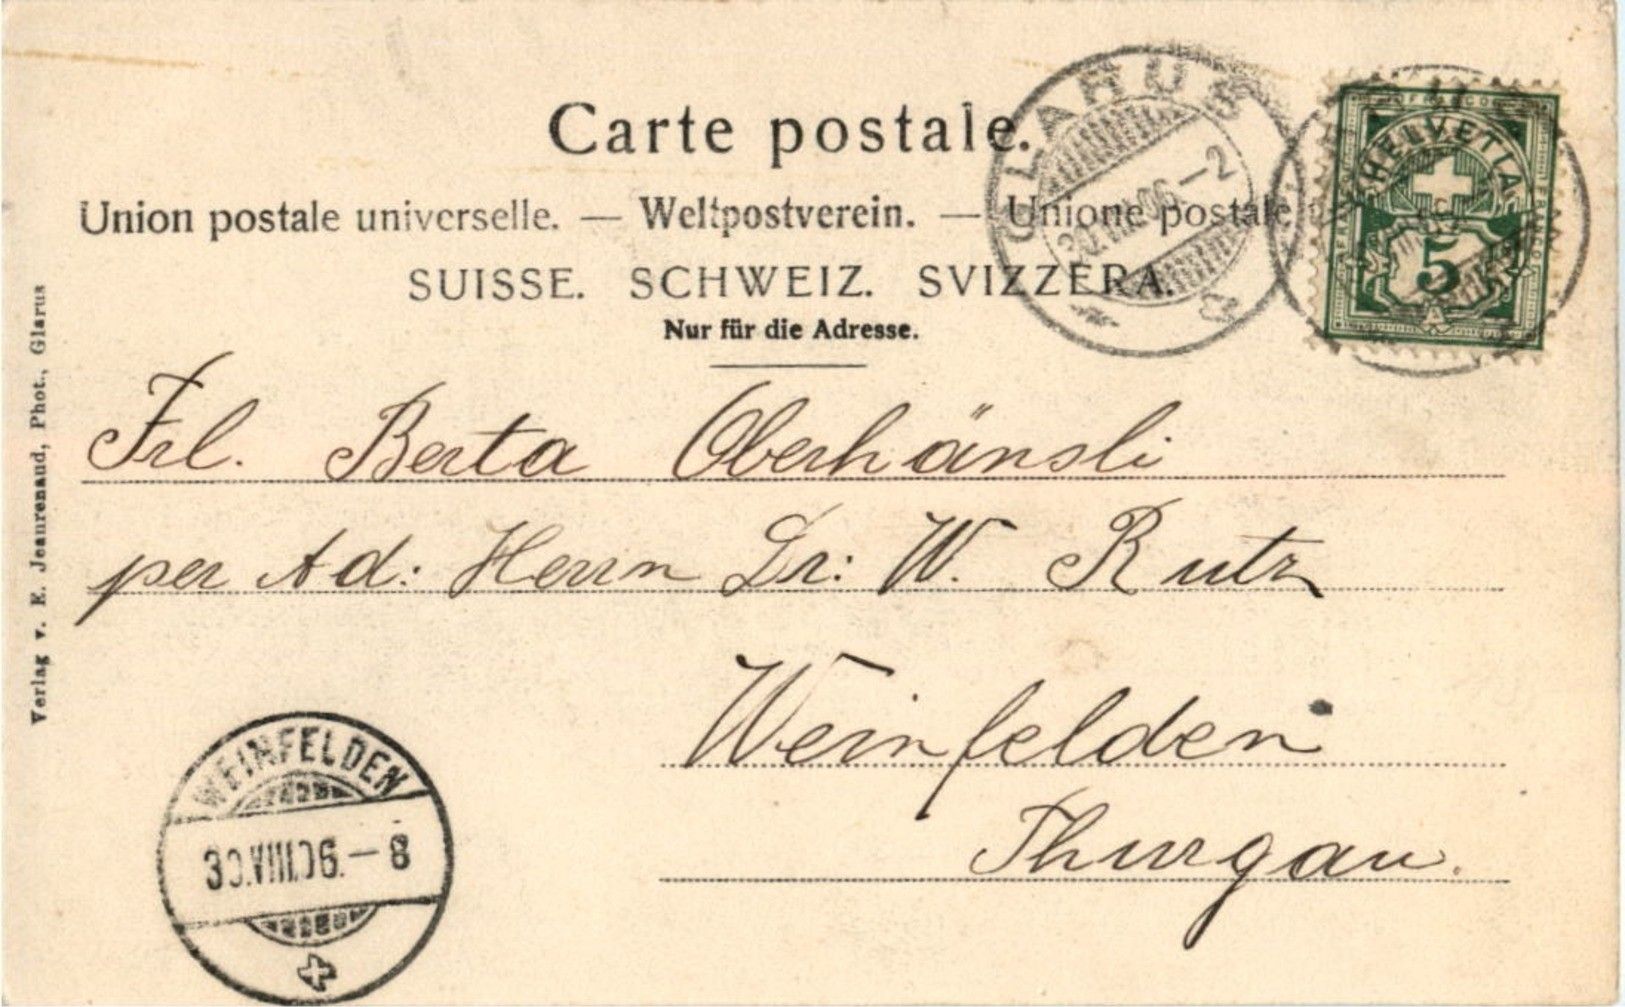 Carte postale.
Union postale universelle. — Weltpostverein. — Unione postale
SUISSE. SCHWEIZ. SVIZZERA.
Nur für die Adresse.
GLARUS
30.VIII.06.–2
HELVETIA
FRANCO
5
Frl. Berta Oberhänsli
per Ad: Herrn Dr: W. Rutz
Weinfelden
Thurgau.
WEINFELDEN
30.VIII.06.–8
Verlag v. E. Jeanrenaud, Phot., Glarus